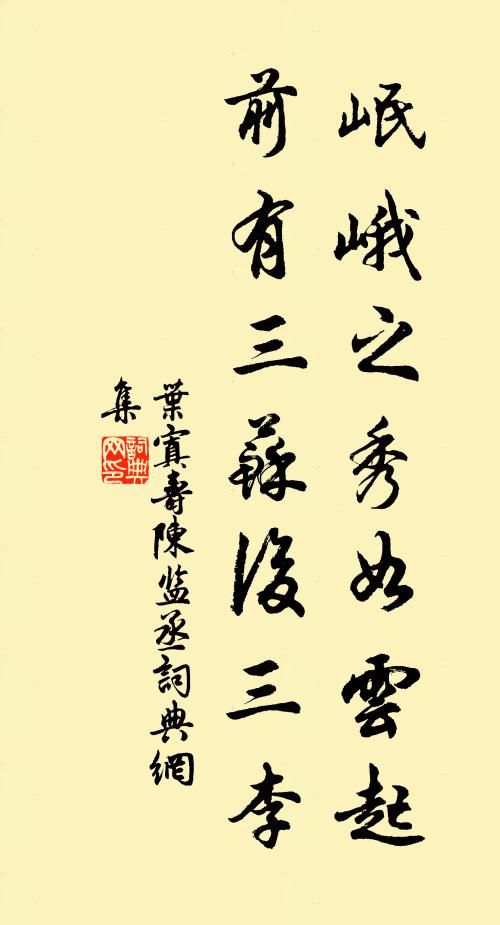 岷峨之秀如雲起
前有三蘇後三李
葉寘壽陳监丞詞典網
集
詞典網印